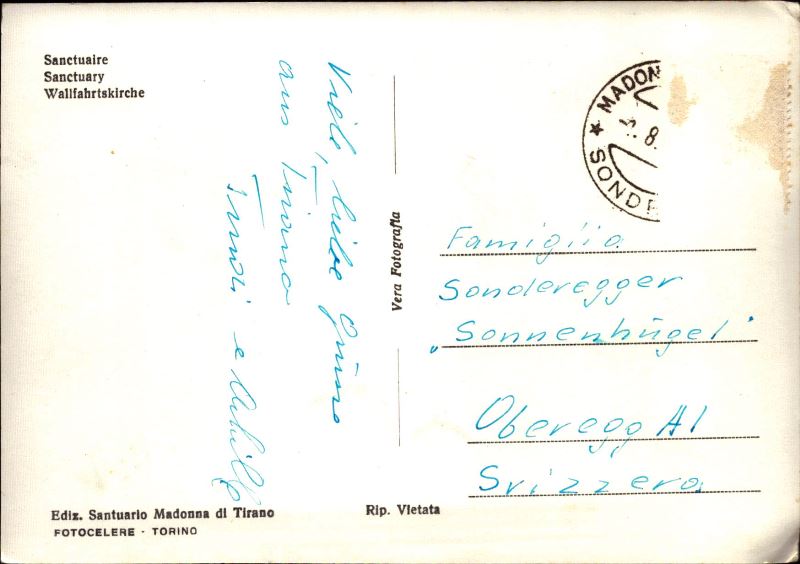 Sanctuaire
Sanctuary
Wallfahrtskirche
Viele, liebe Grüsse
aus Tirano
Trudi e
Vera Fotografia
MADON
8.
SONDR
Famiglia
Sonderegger
„Sonnenhügel"
Oberegg AI
Svizzera
Ediz. Santuario Madonna di Tirano
FOTOCELERE - TORINO
Rip. Vietata